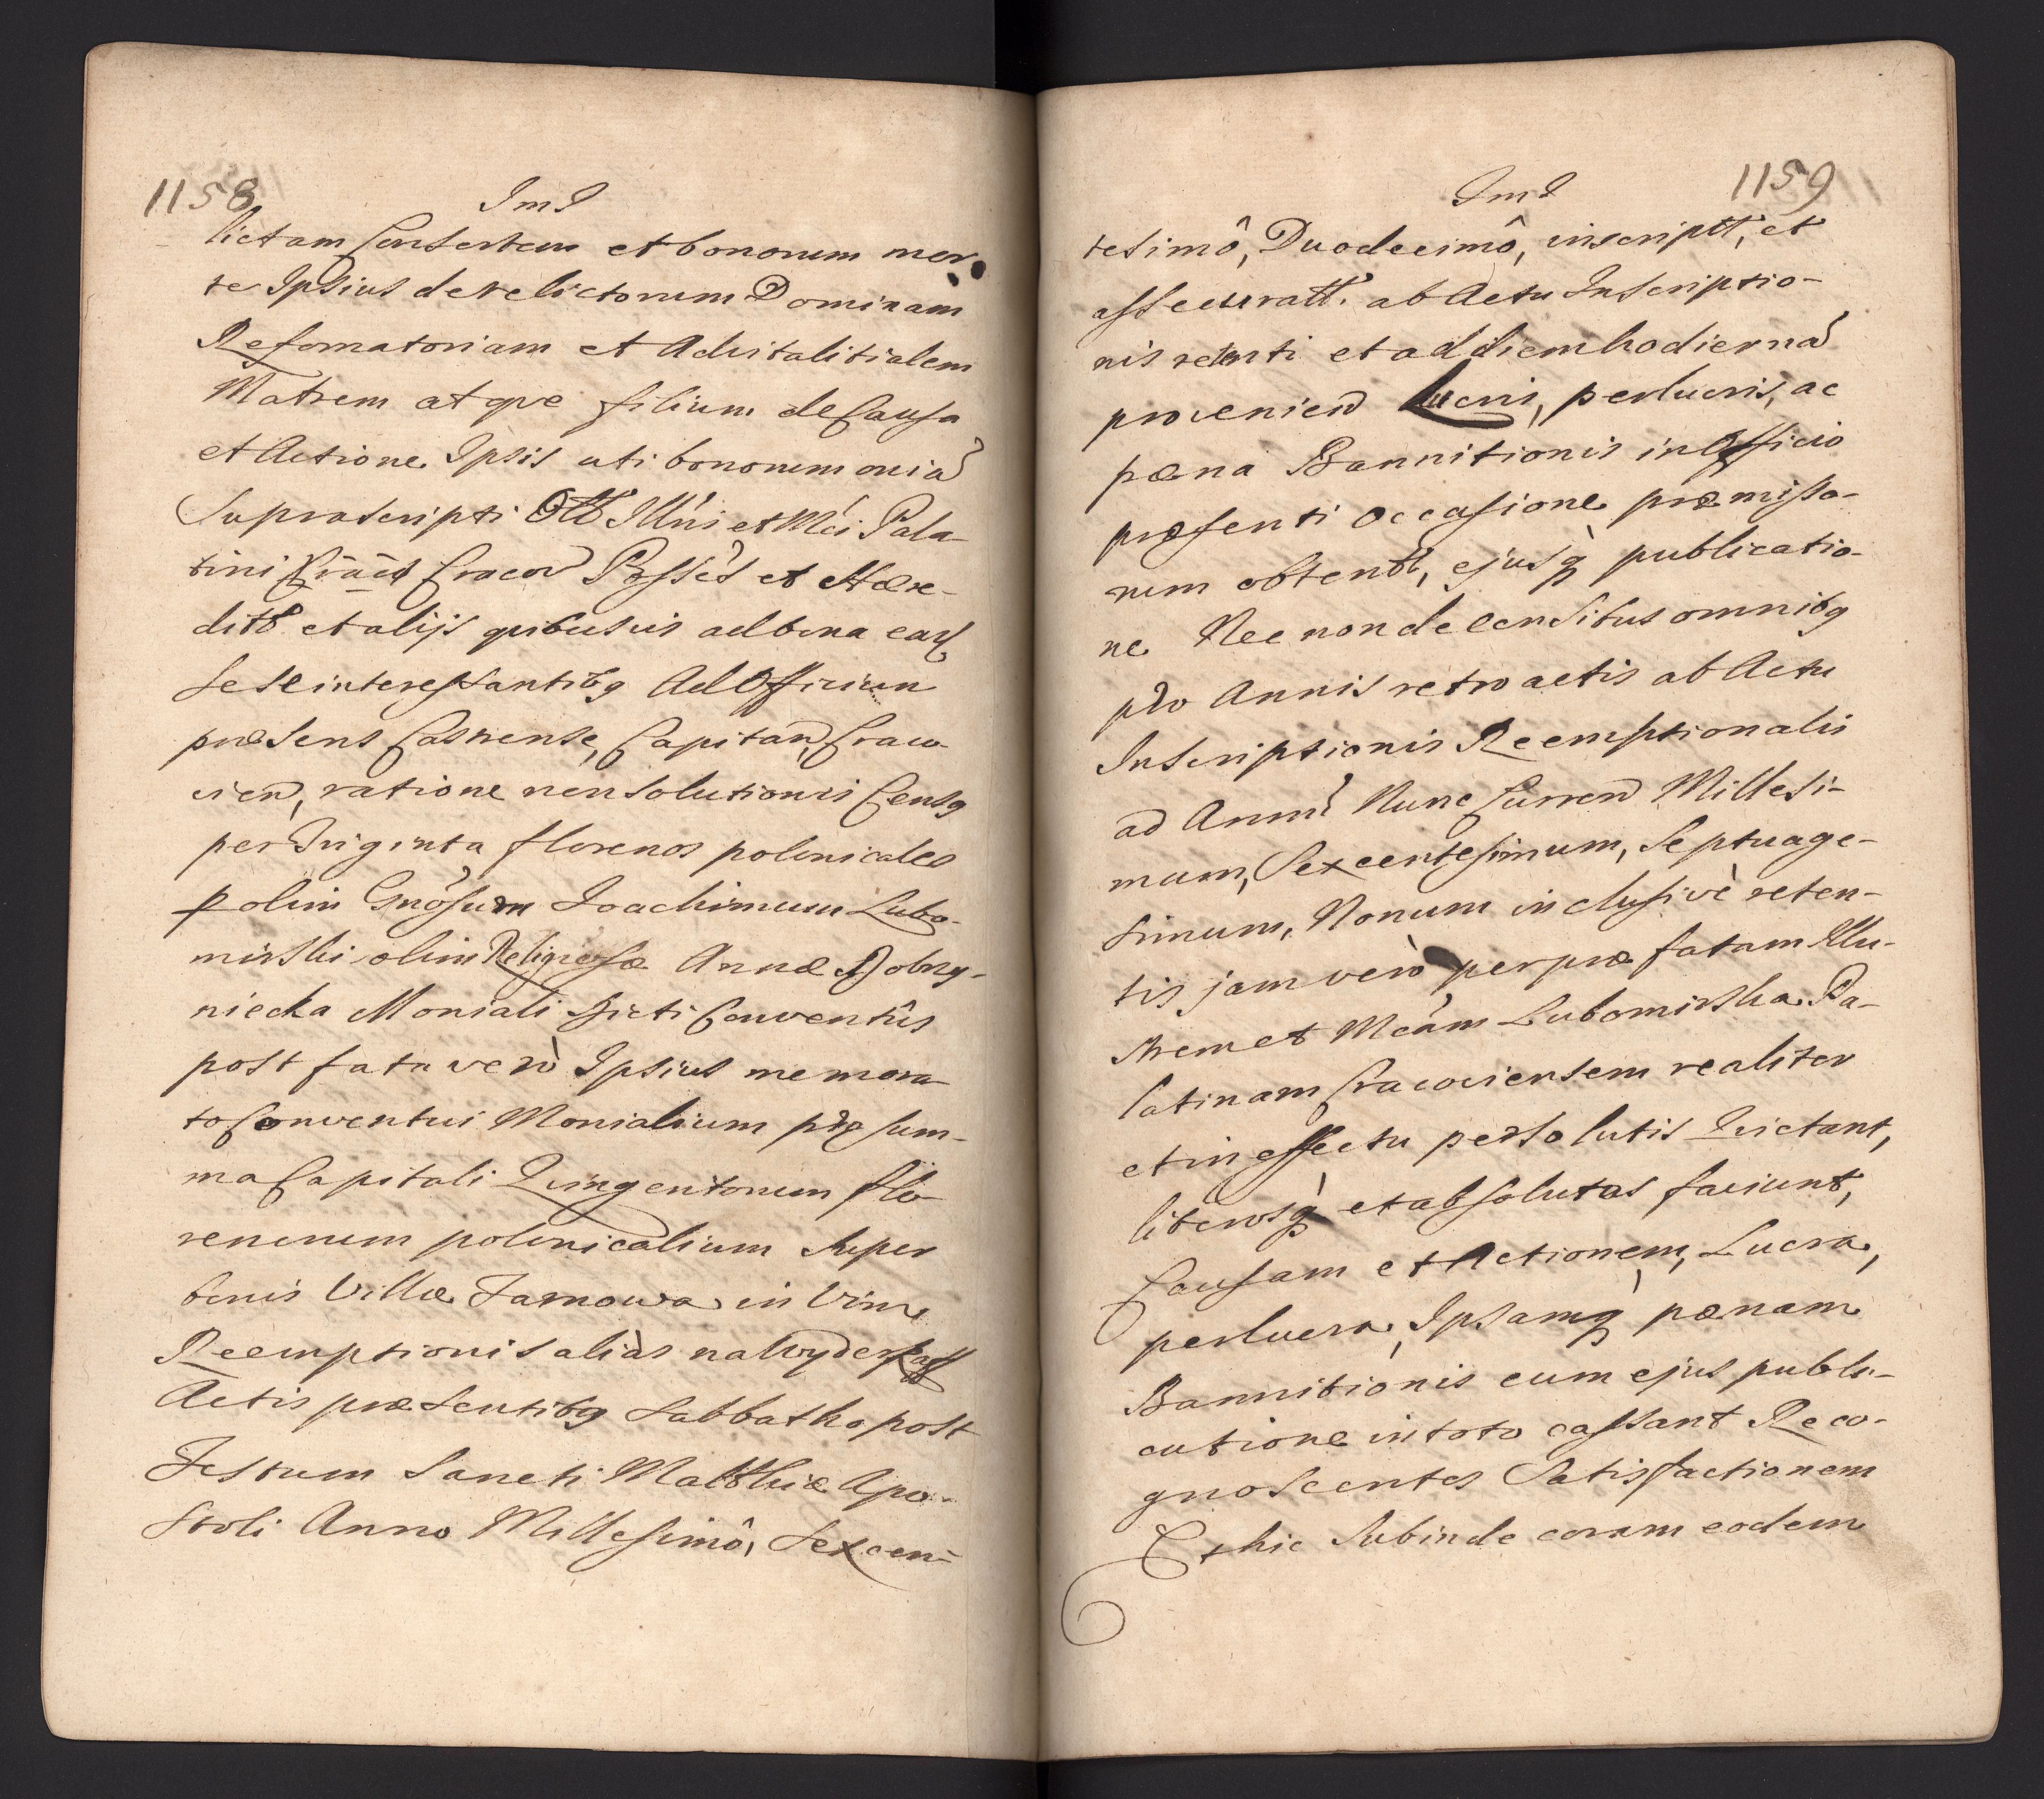 1158
JmJ
lictam Consortem et bonorum mor-
te Ipsius derelictorum Dominam
Reformatoriam et Advitalitialem
Matrem atqve filium de Causa
et Actione Ipsis uti bonorum oniū
Suprascripti Olt̃ Illñi et Mci Pala-
tini Cracov Possēs et Hære-
ditb. et alijs quibusvis ad bona ear
sese interessantibg Ad Officium
præsens Castrense, Capitan, Craco-
vien, ratione non solutionis Censg
per Triginta florenos polonicales
p olim Gnosum Joachimum Lubo-
mirski olim Religiosæ Annæ Dobrg-
niecka Moniali dicti Conventûs
post fata verò Ipsius memora-
to Conventui Monialium pro sum-
ma Capitali Quingentorum flo-
renorum polonicalium super
bonis Villæ Tarnowa in Vim
Reemptionis aliàs na Wyderkaff
Actis præsentibg Sabbatho post
Festum Sancti Matthiæ Apo-
stoli Anno Millesimô, Sexcen-
1159
JmJ
tesimô, Duodecimô, inscriptt, et
assecuratt. ab Actu Inscriptio-
nis retenti et ad diem hodiernā
provenien Lucri, perlucris, ac
pæna Bannitionis in Officio
præsenti occasione præmisso-
rum obtentt, ejusq̀ publicatio-
ne Nec non de censibus omnibg
pro Annis retroactis ab Actu
Inscriptionis Reemptionalis
ad Annū Nunc Curren Millesi-
mum, Sexcentesimum, Septuage-
simum, Nonum inclusivè reten-
tis jam verò per præfatam Illu-
strem et Mcām Lubomirska Pa-
latinam Cracoviensem realiter
et in effectu persolutis Quictant,
liberosq̀ et absolutas faciunt,
Causam et Actionem, Lucra,
perlucra, Ipsamq̀ pænam
Bannitionis cum ejus publi-
catione in toto cassant Reco-
gnoscentes Satisfactionem
Et hic subinde coram eodem